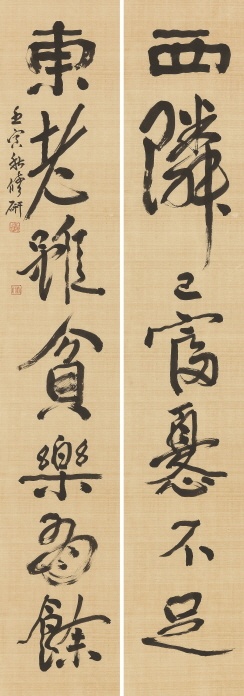 西隣已富憂不足
東老雖貧樂有餘
壬寅秋修研